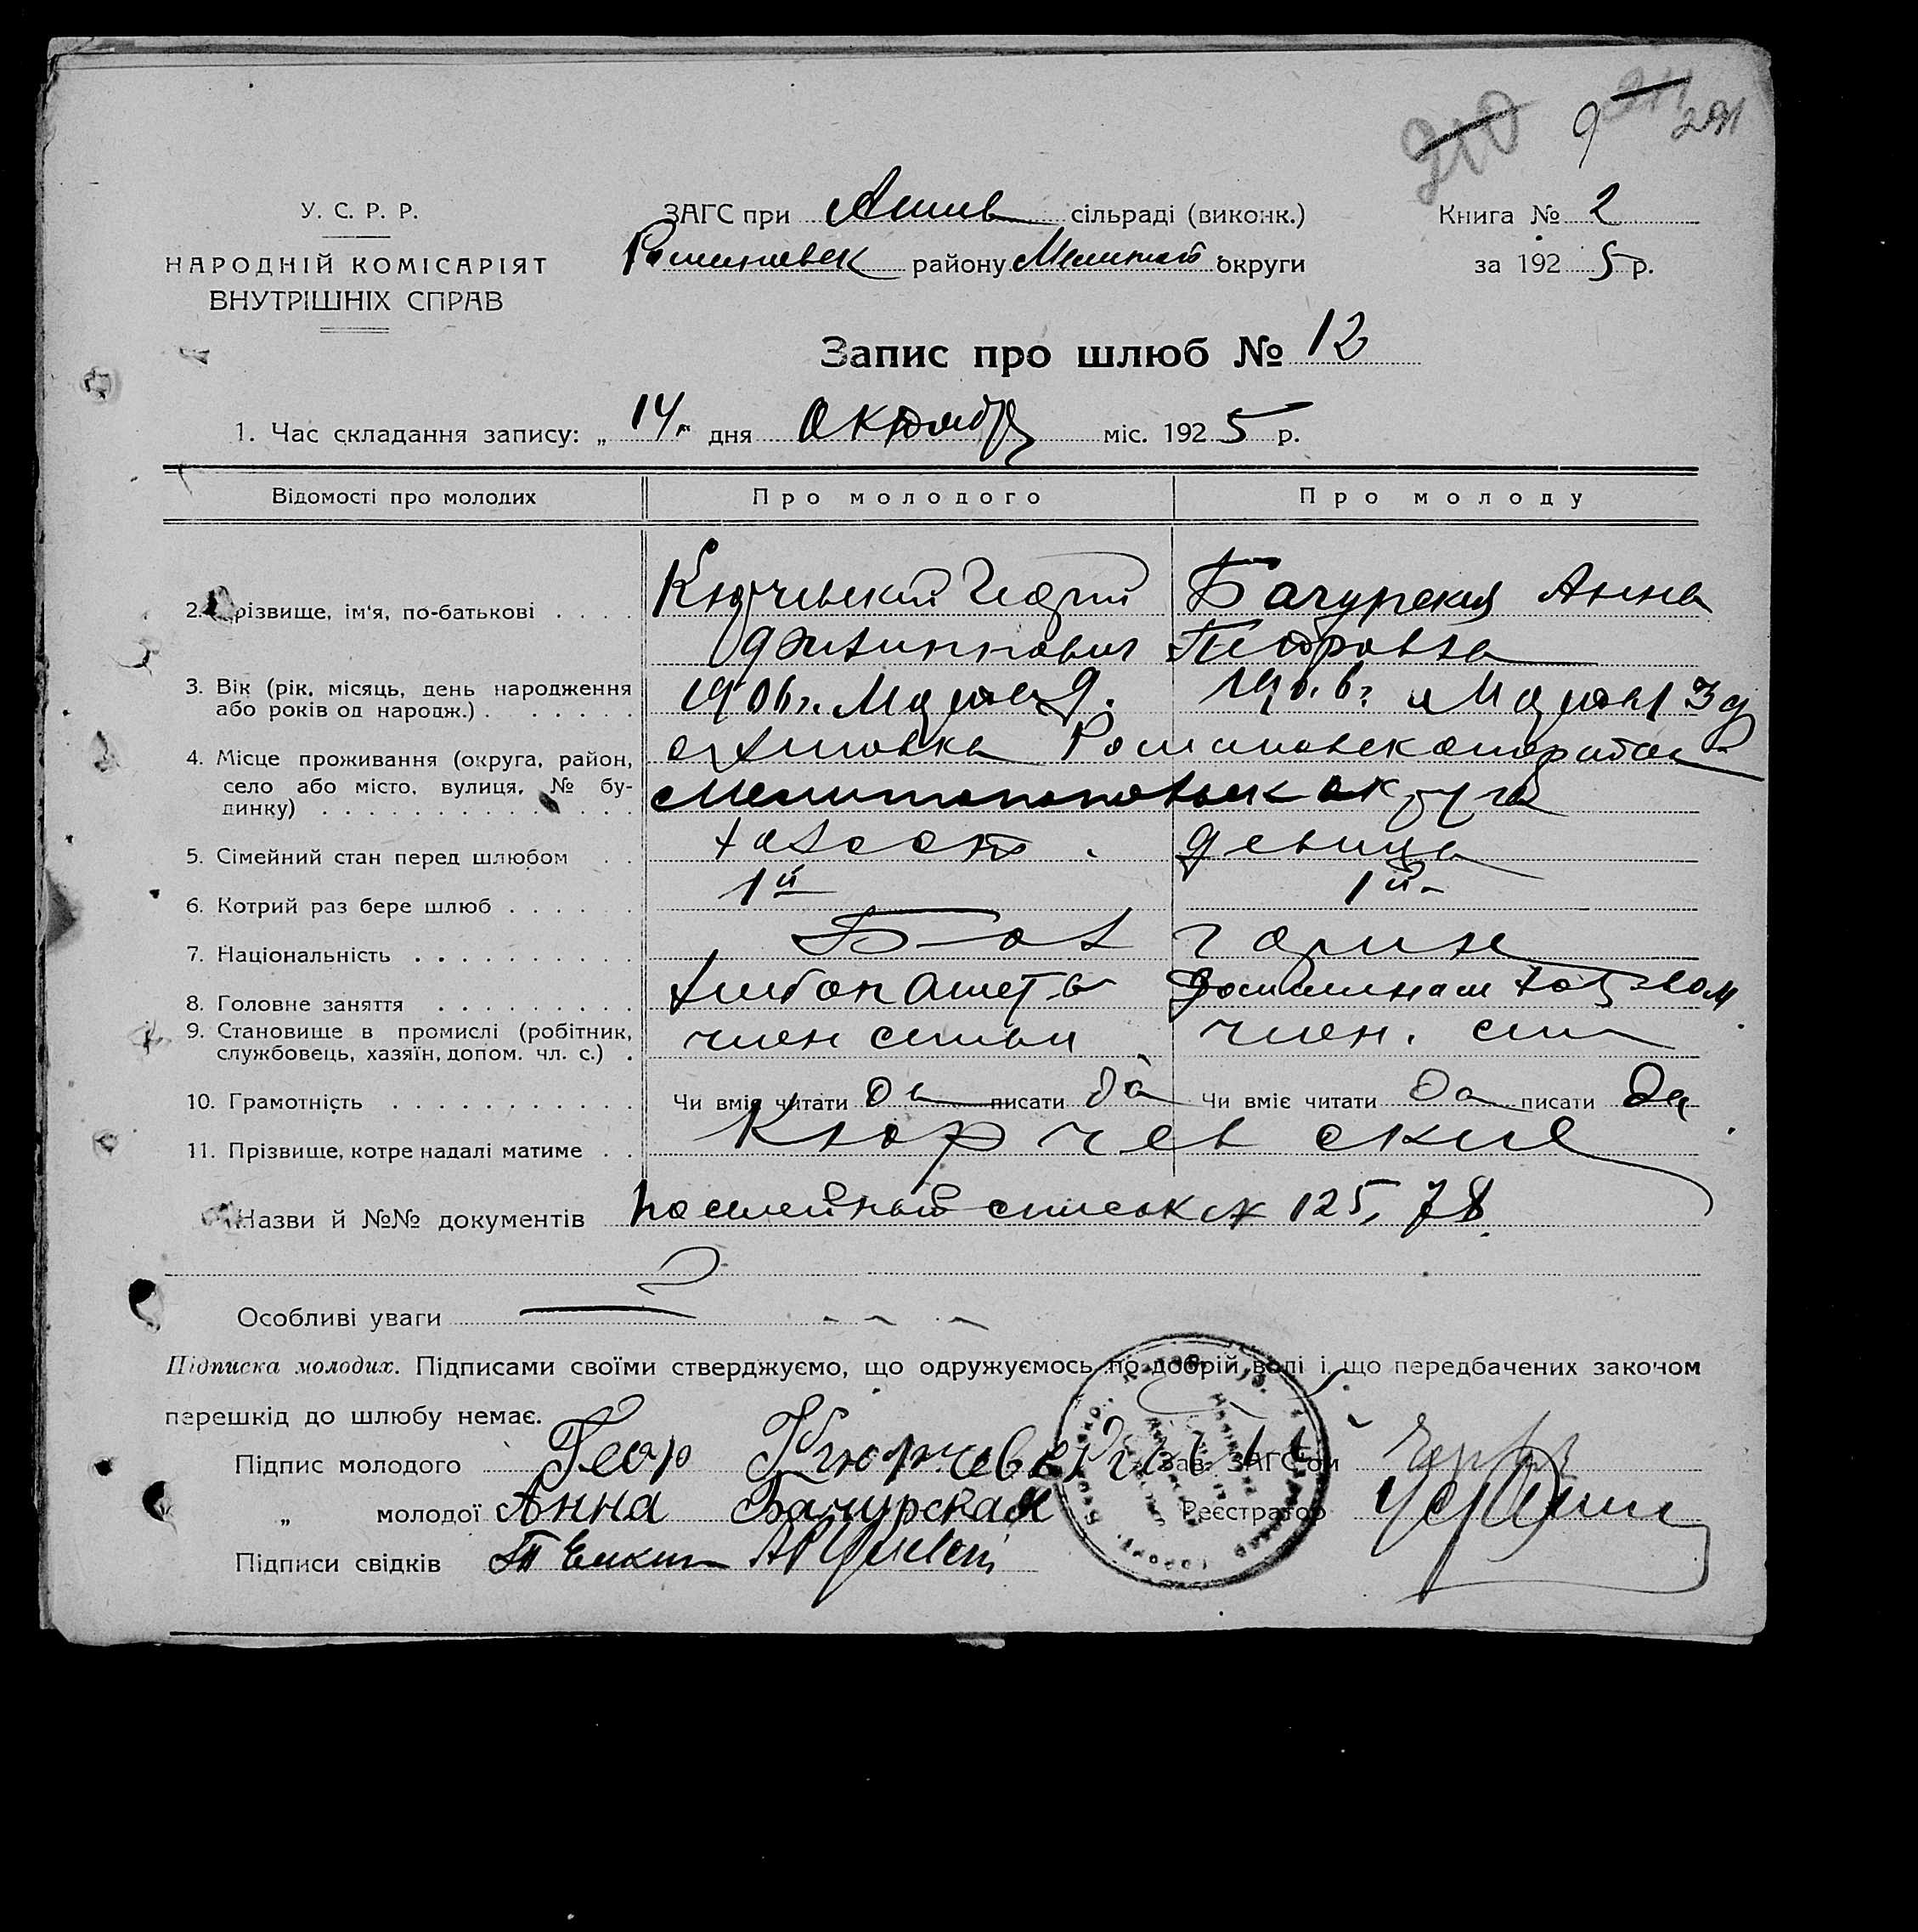 210 9 211 291
У. С. Р. Р.
НАРОДНІЙ КОМІСАРІЯТ
ВНУТРІШНІХ СПРАВ
ЗАГС при сільраді (виконк.)
Романовск району Мелитоп округи
Книга № 2
за 192 5 р.
Запис про шлюб № 12
1. Час складання запису: „ 14 " дня Октября міс. 192 5 р.
Відомості про молодих Про молодого Про молоду
2. Прізвище, ім'я, по-батькові . . . . Кюрчевский Георгий Бачурская Анна
Филиппович Петровна
3. Вік (рік, місяць, день народження 1906 г. Марта 9. 1906 г. Марта 13 д
або років од народж.) . . . . . . .
4. Місце проживання (округа, район, Романовского района
село або місто, вулиця, № бу-
динку) . . . . . . . . . . . . . . Мелитопольск округа
5. Сімейний стан перед шлюбом . . холост. девица
6. Котрий раз бере шлюб . . . . . . 1й 1й
7. Національність . . . . . . . . . . Болгарин
8. Головне заняття . . . . . . . . . хлебопашетв домашнем хозвом.
9. Становище в промислі (робітник, член семьи член. сем
службовець, хазяїн, допом. чл. с.) .
10. Грамотність . . . . . . . . . . . Чи вміє читати да писати да Чи вміє читати да писати да
11. Прізвище, котре надалі матиме . . Кюрчевские
Назви й №№ документів посемейный список № 125, 78.
Особливі уваги
Підписка молодих. Підписами своїми стверджуємо, що одружуємось по добрій волі і що передбачених законом
перешкід до шлюбу немає.
Підпис молодого Геор Кюрчевский Зав. ЗАГС'ом
„ молодої Анна Бачурская Реєстратор
Підписи свідків